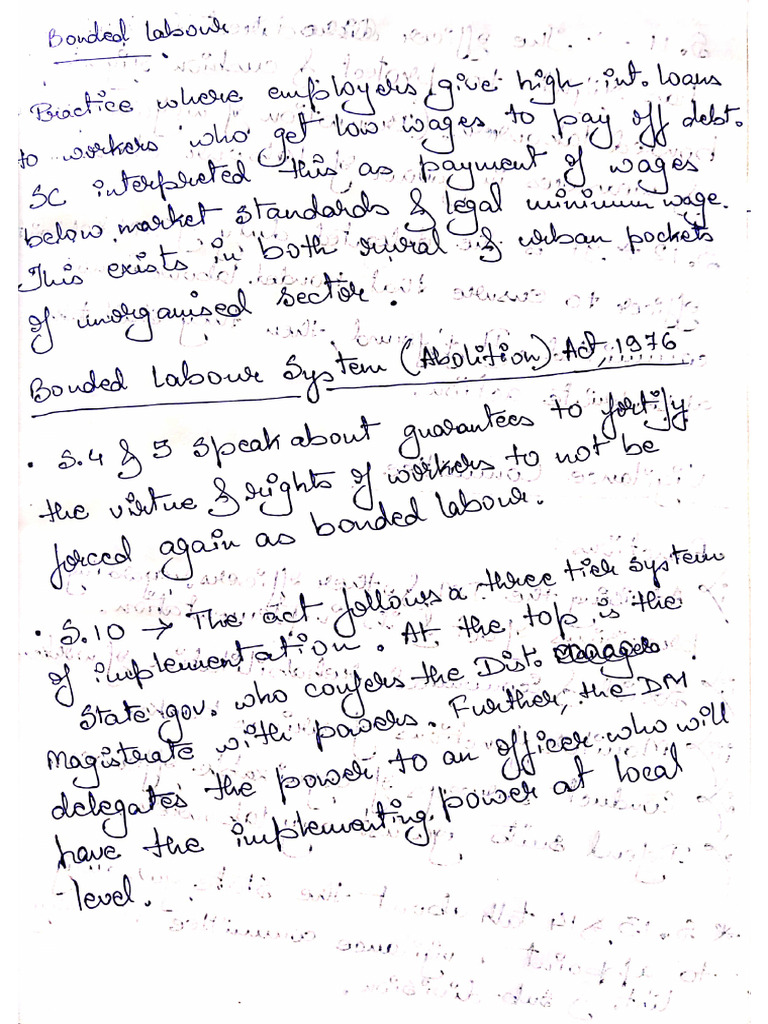 Bonded Labour
Practice where employers give high int. loans
to workers who get low wages to pay off debt.
SC interpreted this as payment of wages
below market standards & legal minimum wage.
This exists in both rural & urban pockets
of unorganised sector.
Bonded Labour System (Abolition) Act, 1976
• S.4 & 5 speak about guarantees to fortify
the virtue & rights of workers to not be
forced again as bonded labour.
• S.10 → The act follows a three tier system
of implementation. At the top is the
State gov. who confers the Dist.
Magistrate with powers. Further, the DM
delegates the power to an officer who will
have the implementing power at local
level.